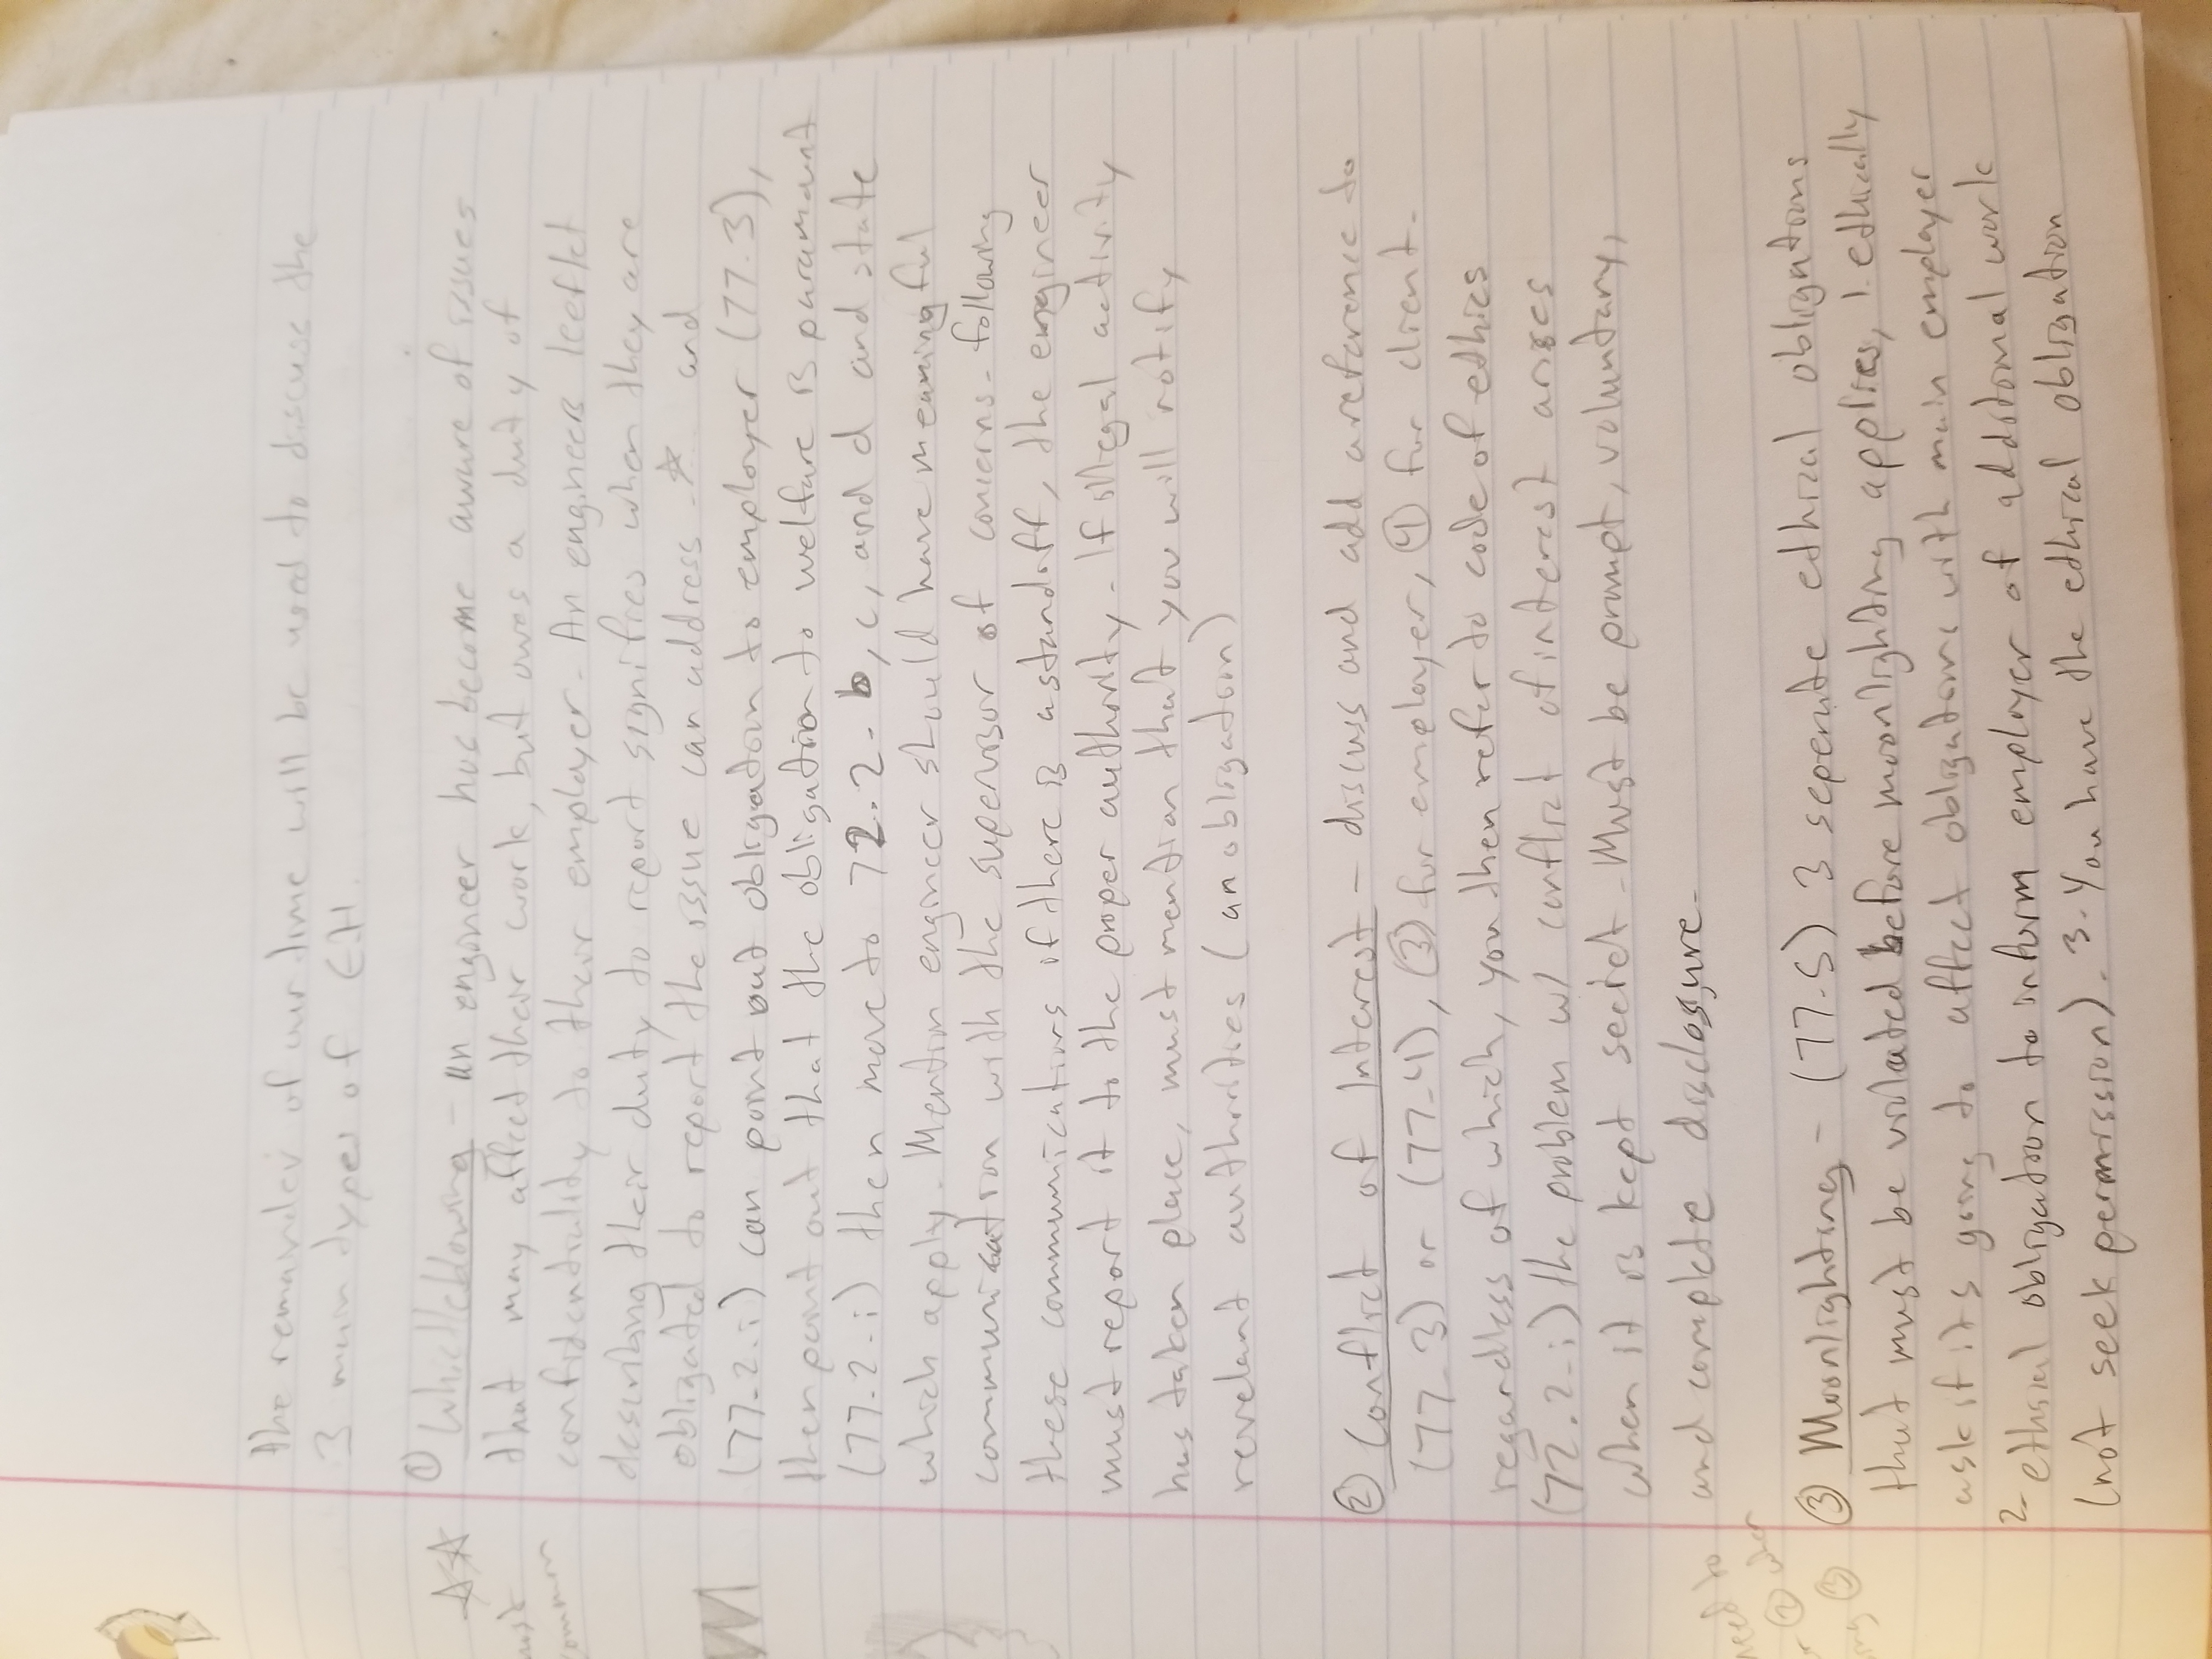 the remainder of our time will be used to discuss the
3 main types of EH.
① Whistleblowing - an engineer has become aware of issues
that may affect their work, but owes a duty of
confidentiality to their employer. An engineers
describing their duty to report signifies when they are
obligated to report the issue can address - ☆ and
(77.2.i) can point out obligation to employer (77.3),
then point out that the obligation to welfare is paramount
(77.2.i) then move to 72.2.b, c, and d and state
which apply. Mention engineer should have meaningful
communication with the supervisor of concerns - following
these communications if there is a standoff, the engineer
must report it to the proper authority. If illegal activity
has taken place, must mention that you will notify
revelant authorities (an obligation)
② Conflict of Interest - discuss and add areference to
(77.3) or (77.4), ③ for employer, ④ for client.
regardless of which, you then refer to code of ethics
(72.2.i) the problem w/ conflict of interest arises
when it is kept secret. Must be prompt, voluntary,
and complete disclosure.
③ Moonlighting - (77.5) 3 seperate ethical obligations
that must be violated before moonlighting applies, 1. ethically
ask if its going to affect obligations with main employer
2- ethical obligation to inform employer of additional work
(not seek permission). 3. You have the ethical obligation
☆☆
most
common
need to
② under
③